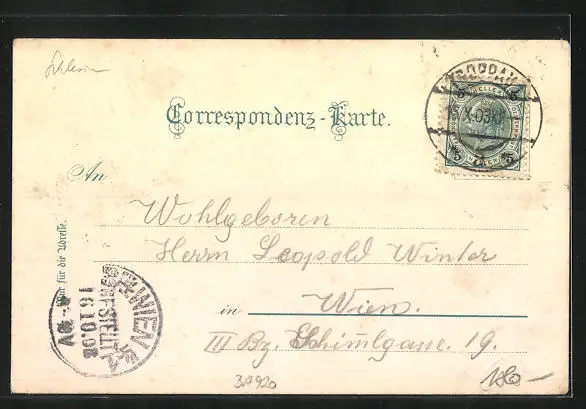 Schlesien
TROPPAU
5 HELLER 5
X 03
5 5
Correspondenz-Karte.
An
Wohlgeboren
Herrn Leopold Winter
in Wien.
III Bz. Schimlgasse. 19.
Nur für die Adresse.
WIEN
BESTELLT
16.10.03
3A920
180-